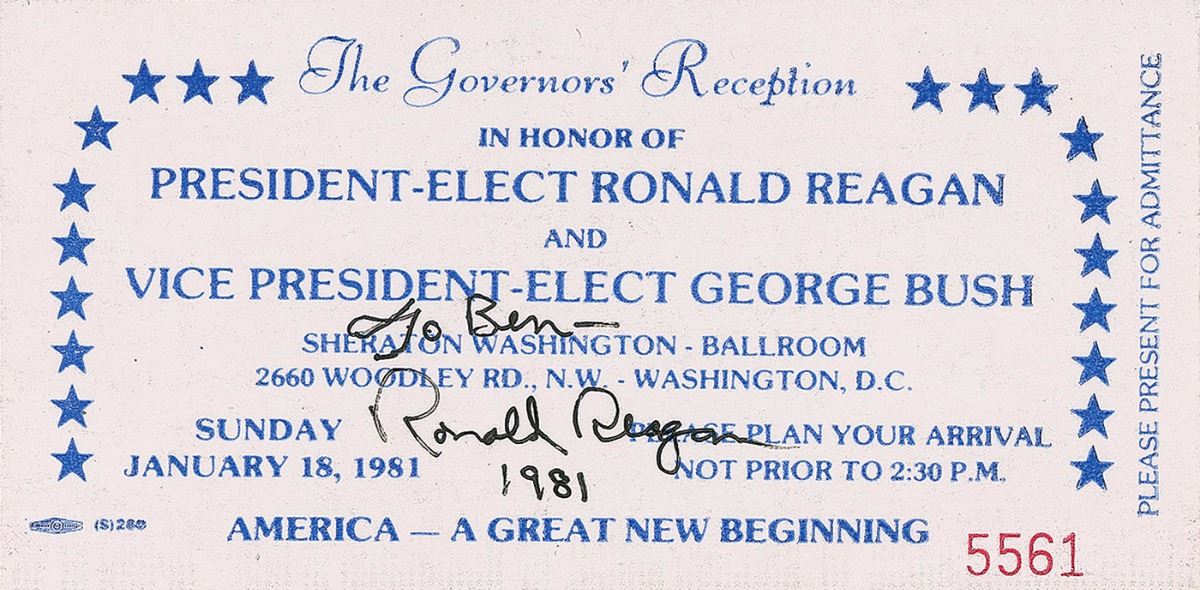 The Governors' Reception
IN HONOR OF
PRESIDENT-ELECT RONALD REAGAN
AND
VICE PRESIDENT-ELECT GEORGE BUSH
To Ben-
SHERATON WASHINGTON - BALLROOM
2660 WOODLEY RD., N.W. - WASHINGTON, D.C.
Ronald Reagan
1981
SUNDAY
JANUARY 18, 1981
PLEASE PLAN YOUR ARRIVAL
NOT PRIOR TO 2:30 P.M.
AMERICA — A GREAT NEW BEGINNING
5561
PLEASE PRESENT FOR ADMITTANCE